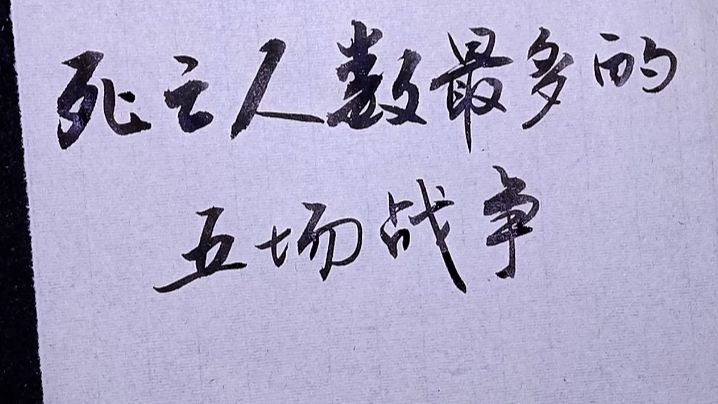 死亡人数最多的
五场战争